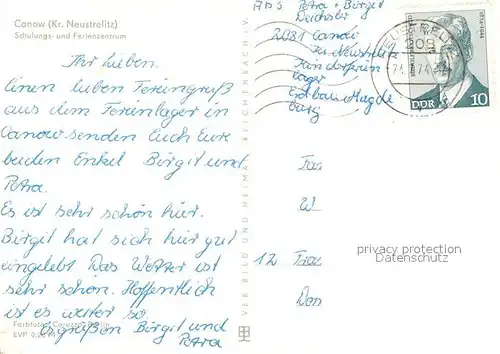 Canow (Kr. Neustrelitz)
Schulungs- und Ferienzentrum
Ihr Lieben.
Einen lieben Feriengruß
aus dem Ferienlager in
Canow senden Euch Eure
beiden Enkel Birgit und
Petra.
Es ist sehr schön hier.
Birgit hat sich hier gut
eingelebt. Das Wetter ist
sehr schön. Hoffentlich
ist es weiter so
Es grüßen Birgit und
Petra
Farbfoto: Berlin
EVP
VEB BILD UND HEIMAT REICHENBACH I. V.
Abs Petra + Birgit
2081 Canow
Kr. Neustrelitz
Kinderferien
lager
Erdbau Magde
burg
DDR 10
Fra
W
12 Frau
privacy protection
Datenschutz